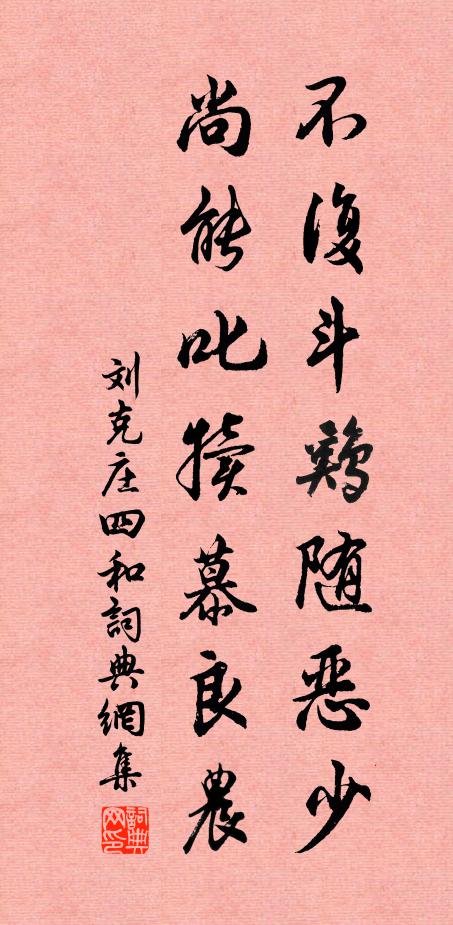 不復斗鷄随恶少
尚能叱犢慕良農
刘克庄四和詞典網集
詞典网印